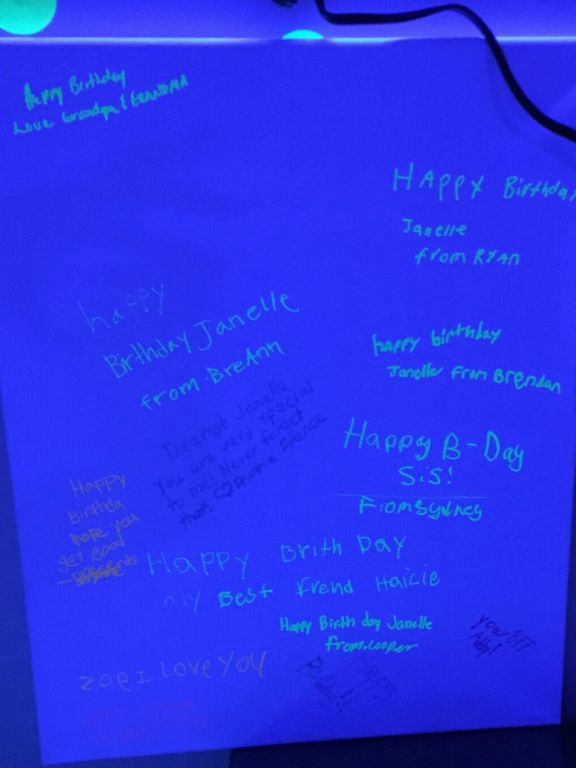 Happy Birthday
Love Grandpa & GRANDMA
HAppy Birthday
Janelle
from RYAN
happy
Birthday Janelle
from BreAnn
happy birthday
Janelle from Brendan
Dearest Janelle
You are very special
to me! Never forget
that! ♡ Auntie France
Happy B-Day
SiS!
From Sydney
Happy
Birthda
hope you
get good
HAppy Brith DAy
my Best frend Hailie
Happy Birth day Janelle
from.cooper
your BFF
Addy!
zoe I Love You
Happy
Birthday!!